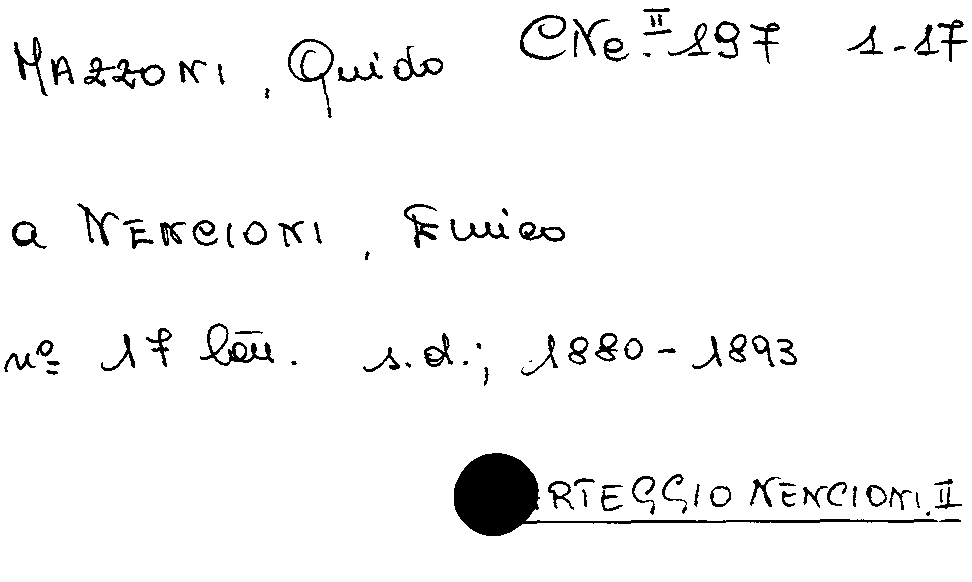 MAZZONI, Guido CNe.II 197 1-17
a NENCIONI, Enrico
nº 17 lett. s.d.; 1880-1893
RTEGGIO NENCIONI. II